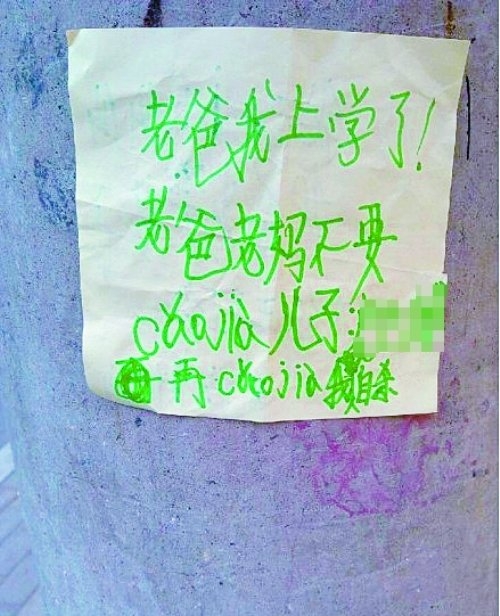 老爸我上学了!
老爸老妈不要
chaojia 儿子:
再 chaojia 我自杀